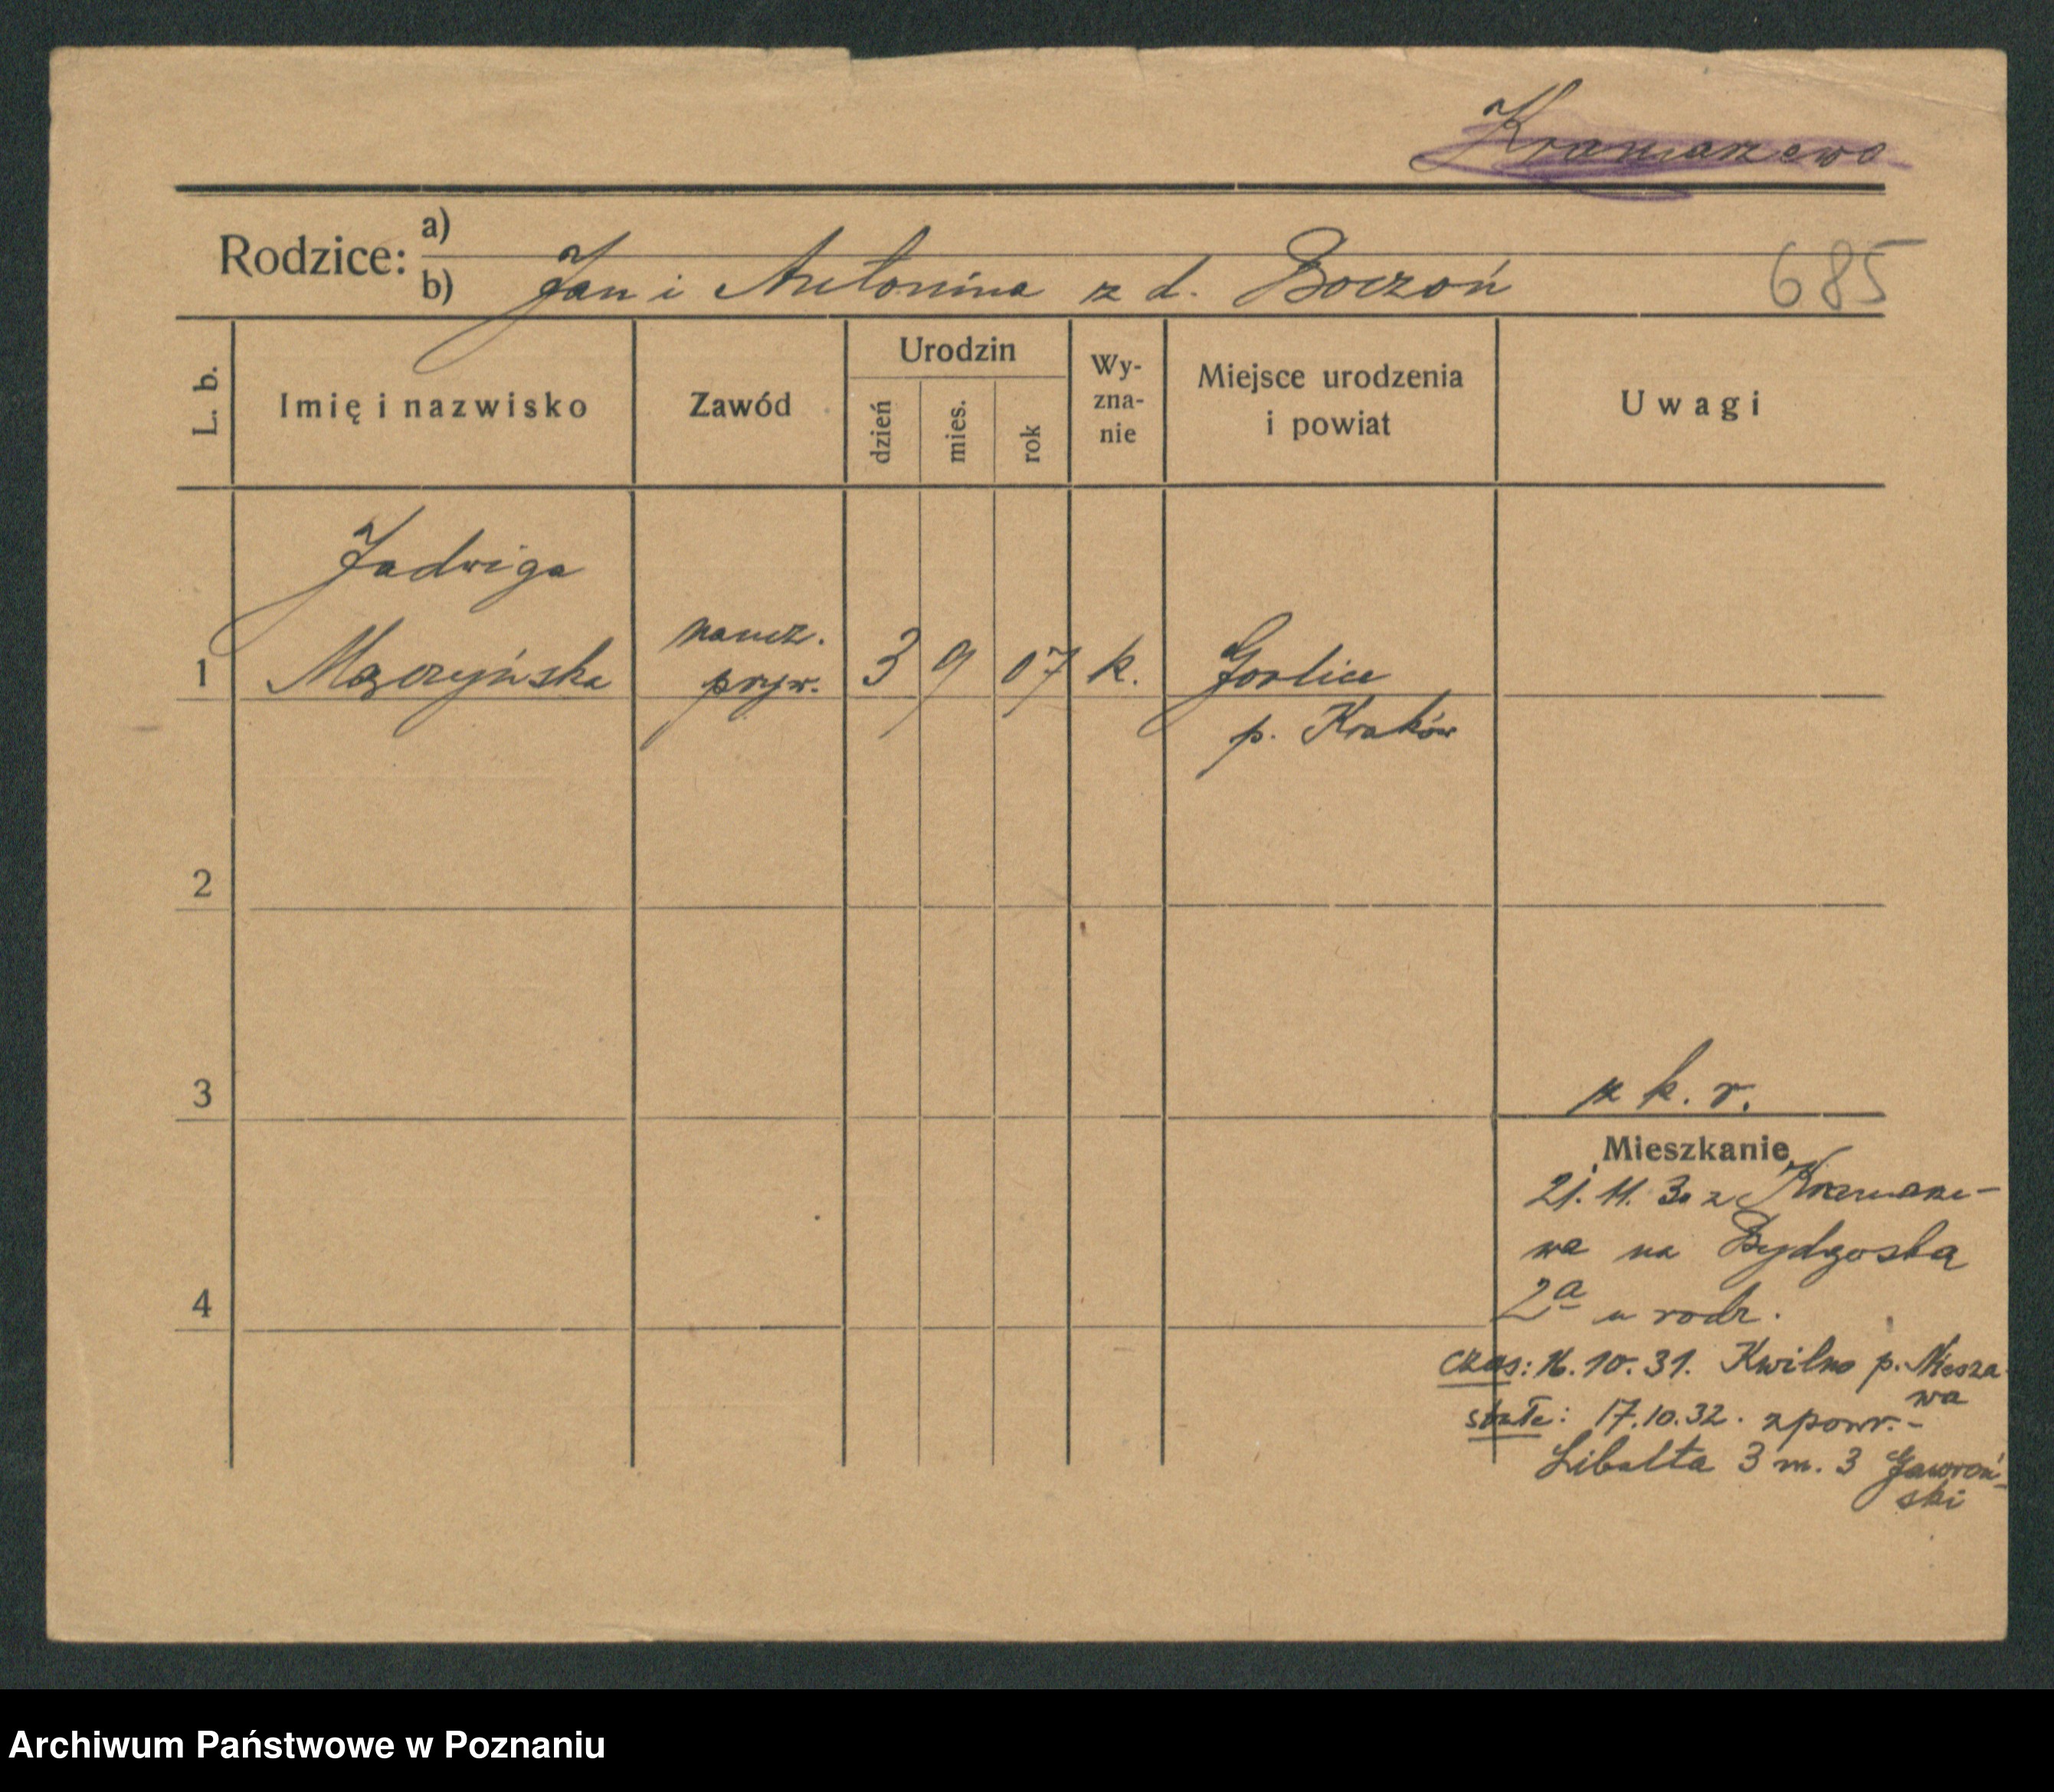 Kramarzewo
Rodzice:
a)
b) Jan i Antonina z d. Boczoń
685
L. b.
Imię i nazwisko
Zawód
Urodzin
dzień
mies.
rok
Wy-
zna-
nie
Miejsce urodzenia
i powiat
Uwagi
Jadwiga
1 Mączyńska
naucz.
pryw.
3 9 07 k.
Gorlice
p. Kraków
2
3
z k. r.
Mieszkanie
21. 11. 30 z
wa na Bydgoską
4
2a u rodz.
czas: 16.10.31. Kwilno p. Niesza
wa
stałe: 17.10.32. zpowr.-
Libelta 3 m. 3 Jaworoń-
ski
Archiwum Państwowe w Poznaniu